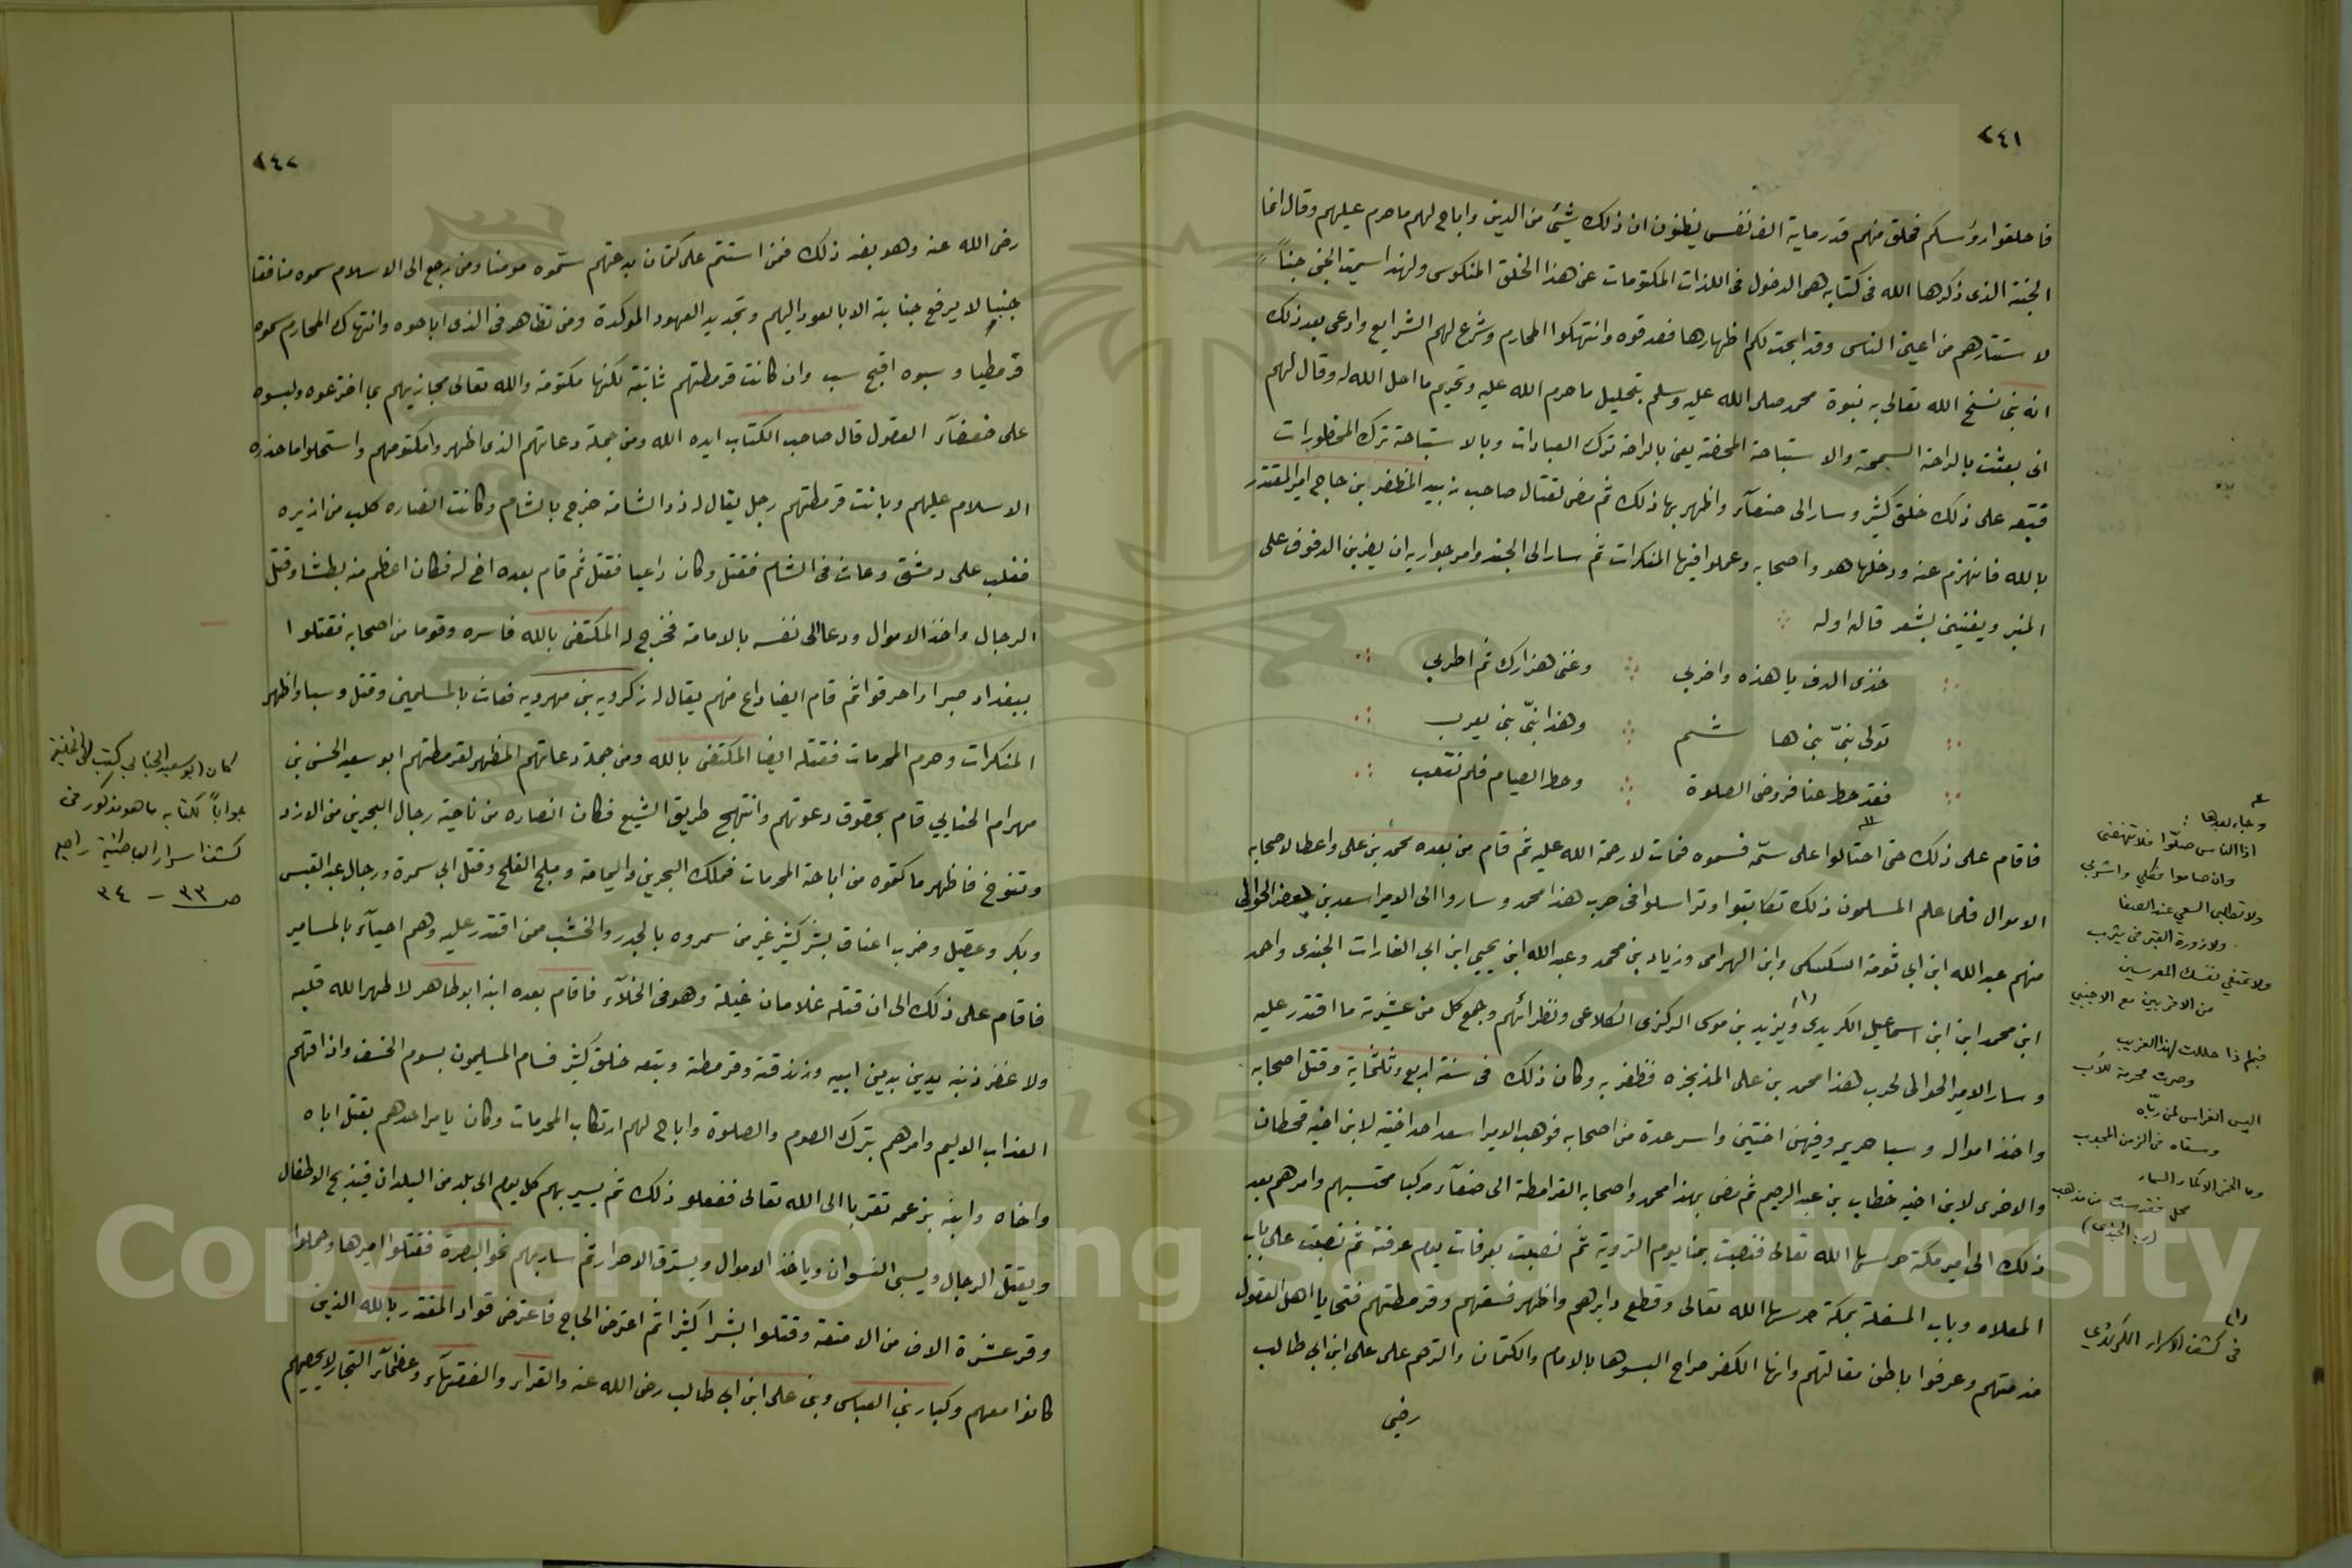 ٢٤١
فاحلقوا رؤسكم فحلق منهم قدر ماية الف نفس يظنون ان ذلك شئ من الدين واباح لهم ما حرم عليهم وقال انما
الجنة الذى ذكرها الله فى كتابه هى الدخول فى اللذات المكتومات عن هذا الخلق المنكوس ولهذا سميت الجن جناً
لاستتارهم من اعين الناس وقد ابحت لكم اظهارها فصدقوه وانتهكوا المحارم وشرع لهم الشرايع وادعى بعد ذلك
انه نبى نسخ الله تعالى به نبوة محمد صلى الله عليه وسلم بتحليل ما حرم الله عليه وتحريم ما احل الله له وقال لهم
انى بعثت بالراحة السمحة والاستباحة المحضة يعنى بالراحة ترك العبادات وبالاستباحة ترك المحظورات
فتبعه على ذلك خلق كثير وسار الى صنعآء واظهر بها ذلك ثم مضى لقتال صاحب زبيد المظفر بن حاج امير المقتدر
بالله فانهزم عنه ودخلها هو واصحابه وعملوا فيها المنكرات ثم سار الى الجند وامر جواريه ان يضربن الدفوف على
المنبر ويغنين بشعر قاله اوله
خذى الدف يا هذه واضربي وغنى هزارك ثم اطربي
تولى نبىّ بنى هاشم وهذا نبىّ بنى يعرب
فقد حط عنا فروض الصلوة وحط الصيام فلم نتعب
فاقام على ذلك حتى احتالوا على سمّه فسموه فمات لا رحمة الله عليه ثم قام من بعده محمد بن على واعطا لاصحابه
الاموال فلما علم المسلمون ذلك تكاتبوا وتراسلوا فى حرب هذا محمد وساروا الى الامير اسعد بن يعفر الحوالى
منهم عبد الله ابن ابى ثومة السكسكى وابن الهرامى وزياد بن محمد وعبد الله ابن يحيى ابن ابى الغارات الجندى واحمد
ابن محمد ابن ابن اسماعيل الكريدى (١) ويزيد بن موسى الركزى الكلاعى ونظرائهم وجمع كل من عشيرته ما اقتدر عليه
وسار الامير الحوالى لحرب هذا محمد بن على المذيخره فظفر به وكان ذلك فى سنة اربع وثلثماية وقتل اصحابه
واخذ امواله وسبا حريمه وفيهن اختين واسر عدة من اصحابه فوهب الامير اسعد احد اختيه لابن اخيه قحطان
والاخرى لابن اخيه خطاب بن عبد الرحيم ثم مضى بهذا محمد واصحابه القرامطة الى صنعآء مركبا محتسبهم وامرهم بعد
ذلك الى امير مكة حرسها الله تعالى فنصبت بمنا يوم التروية ثم نصبت بعرفات يوم عرفة ثم نصبت على باب
المعلاه وباب المسفلة بمكة حرسها الله تعالى وقطع دابرهم واظهر فسقهم وقرمطتهم فتحايا اهل العقول
مذمتهم وعرفوا باطن مقالتهم وانها الكفر صراح البسوها بالامام والكتمان والترحم على على ابن ابى طالب
رضى
وجاء بعدها :
اذا الناس صلّوا فلا تنهضى
وان صاموا فكلي واشربي
ولا تطلبى السعي عند الصفا
ولا زورة القبر فى يثرب
ولا تمنعي نفسك المعرسين
من الاقربين مع الاجنبي
فبماذا حللت لهذا الغريب
وصرت محرمة للأب
اليس الغراس لمن ربّاه
وسقاه فى الزمن المجدب
وما الخمر الا كماء السماء
محل فقدست من مذهب
(١)
فى كشف الاسرار الكرندي
٢٤٢
رضى الله عنه وهو بضد ذلك فمن استتم على كتمان بدعتهم سمّوه مومنا ومن رجع الى الاسلام سموه منافقا
جنبا لا يرفع جنابته الا بالعود اليهم وتجديد العهود الموكدة ومن تظاهر فى الذى اباحوه وانتهاك المحارم سموه
قرمطيا وسبوه اقبح سب وان كانت قرمطتهم ثابتة لكنها مكتومة والله تعالى مجازيهم بما اخترعوه ولبسوه
على ضعفآء العقول قال صاحب الكتاب ايده الله ومن جملة دعاتهم الذى اظهروا مكتومهم واستحلوا ما حذره
الاسلام عليهم وبانت قرمطتهم رجل يقال له ذو الشامة خرج بالشام وكانت انصاره كلب من
فغلب على دمشق وعاث فى الشام فقتل وكان داعيا فقتل ثم قام بعده اخ له فكان اعظم منه بطشا وقتل
الرجال واخذ الاموال ودعا الى نفسه بالامامة فخرج له المكتفى بالله فاسره وقوما من اصحابه فقتلوا
ببغداد صبرا واحرقوا ثم قام ايضا داع منهم يقال له زكرويه بن مهرويه فعاث بالمسلمين وقتل وسبا واظهر
المنكرات وحرم المحرمات فقتله ايضا المكتفى بالله ومن جملة دعاتهم المظهر لقرمطتهم ابو سعيد الحسن بن
مهرام الجنابي قام بحقوق دعوتهم وانتهج طريق الشيع فكان انصاره من ناحية رجال البحرين من الازد
وتنوخ فاظهر ما كتموه من اباحة المحرمات فملك البحرين واليمامة وملج الفلح وقتل ابى سمرة ورجال عبد القيس
وبكر وعقيل وضرب اعناق بشر كثير غير من سمروه بالجدر والخشب ممن اقتدر عليه وهم احيآء بالمسامير
فاقام على ذلك الى ان قتله غلامان غيلة وهو فى الخلآء فاقام بعده ابنه ابو طاهر لا طهر الله قلبه
ولا غفر ذنبه يدين بدين ابيه وزندقته وقرمطته وتبعه خلق كثير فسام المسليمون بسوم الخسف واذاقهم
العذاب الاليم وامرهم بترك الصوم والصلوة واباح لهم ارتكاب المحرمات وكان يامر احدهم بقتل اباه
واخاه وابنه بزعمه تقربا الى الله تعالى ففعلو ذلك ثم يسير بهم كل يوم الى بلد من البلدان فيذبح الاطفال
ويقتل الرجال ويسبى النسوان وياخذ الاموال ويسترق الاحرار ثم سار بهم نحو البصرة فقتلوا اميرها وحملوا
وقر عشرة الاف من الامتعة وقتلوا بشرا كثيرا ثم اعترض الحاج فاعترض قواد المقتدر بالله الذين
كانوا معهم وكبار بنى العباس وبنى على ابن ابى طالب رضى الله عنه والقراء والفقهآء وعظمآء التجار لا يحصيهم
كان ابو سعيد الجنابي كتب الى الخليفة
جواباً لكتابه ما هو مذكور فى
كشف اسرار الباطنية راجع
ص ٣٣ - ٣٤
Copyright © King Saud University
1957